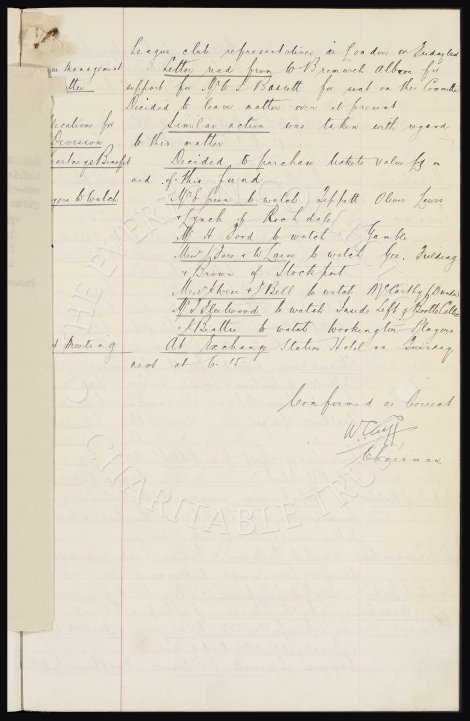 League club representatives in London on Friday last
Management Letter read from W Bromwich Albion for
support for Mr C L Bassett for seat on this Committee
Decided to leave matter over at present
for Similar action was taken with regard
Division to this matter
Benefit Decided to purchase tickets value in
aid of this fund
to Watch Mr E Green to watch Tippett Oliver Laws
& Lynch of Rochdale
Mr H Ford to watch Gamble
Mess to watch Geo. Fielding
& Brown of Stockport
Mess & J Bell to watch McCarthy
Mr J Fleetwood to watch Inside Left of Bootle
& J Beattie to watch Workington Players
Meeting At Exchange Station Hotel on Tuesday
next at 6.15
Confirmed as Correct
W. Cuff
Chairman
THE EVERTON
CHARITABLE TRUST